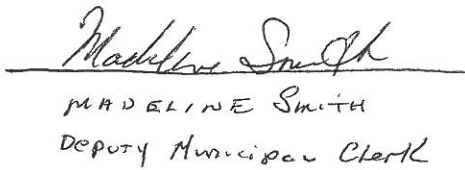 Madeline Smith
MADELINE SMITH
DEPUTY Municipal Clerk